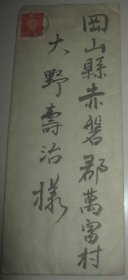 岡山縣赤磐郡萬富村
大野壽治様